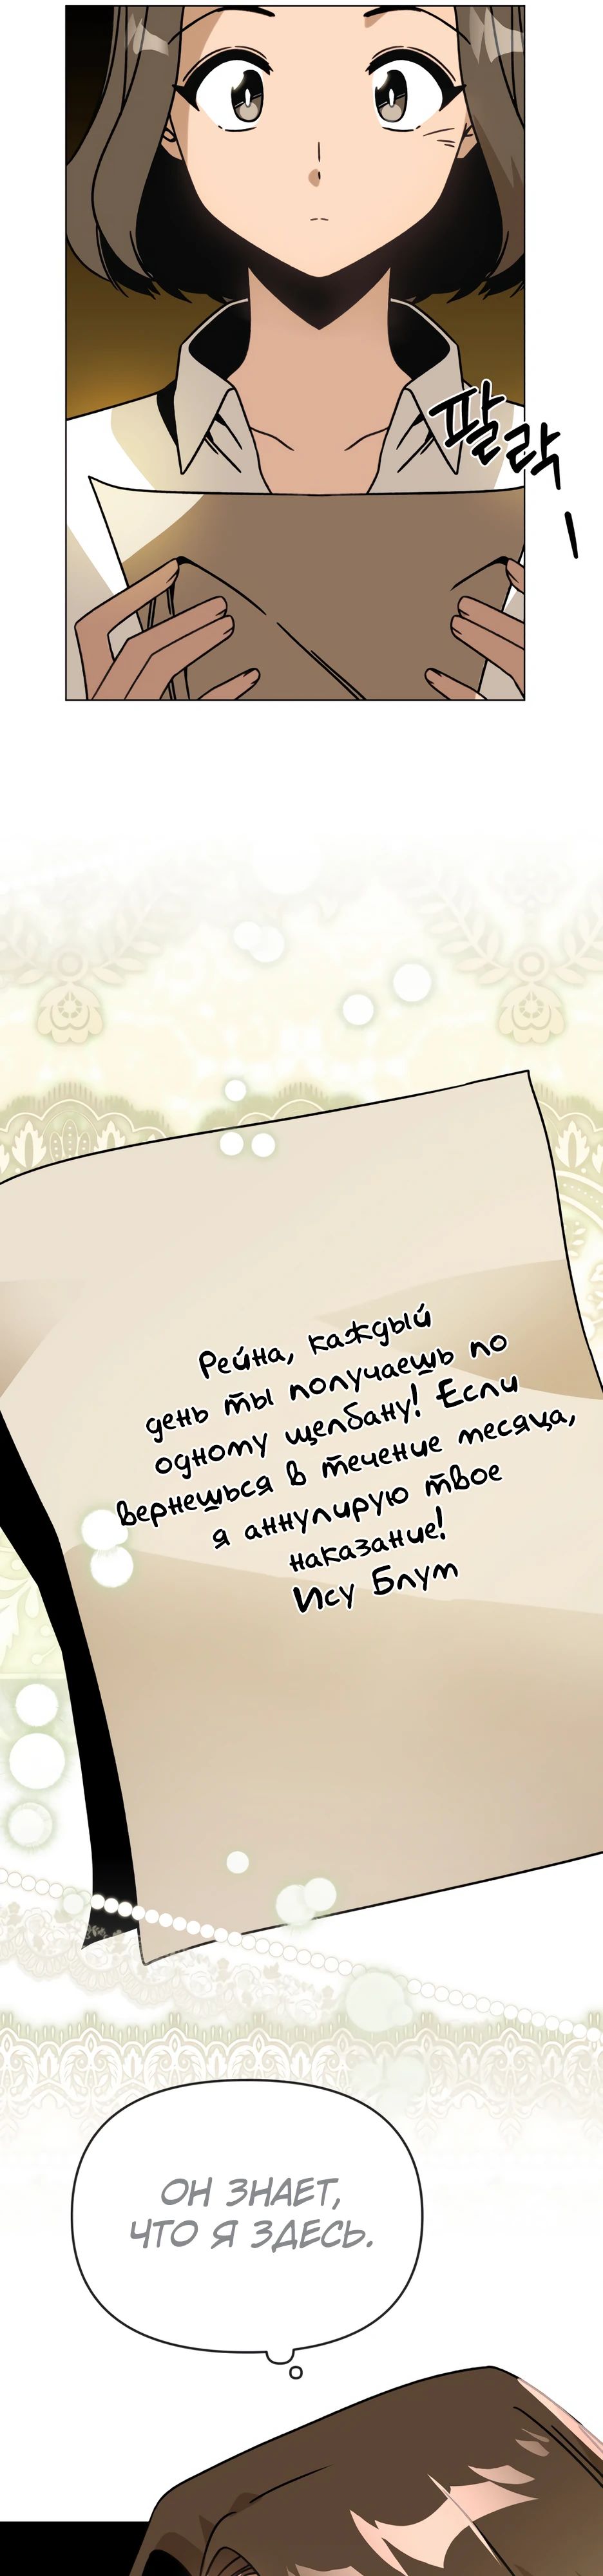 팔락
Рейна, каждый
день ты получаешь по
одному щелбану! Если
вернешься в течение месяца,
я аннулирую твое
наказание!
Ису Блум
ОН ЗНАЕТ,
ЧТО Я ЗДЕСЬ.